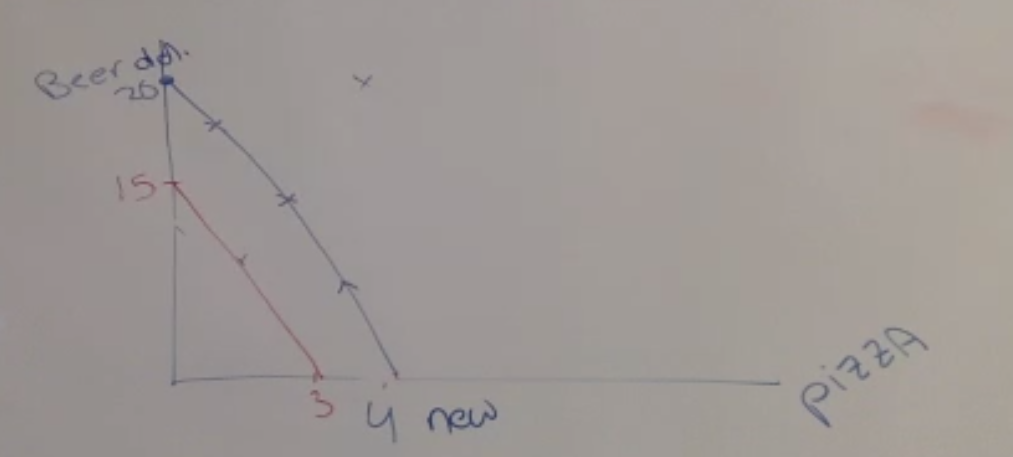 Beer
20
15
3
4 new
PizzA